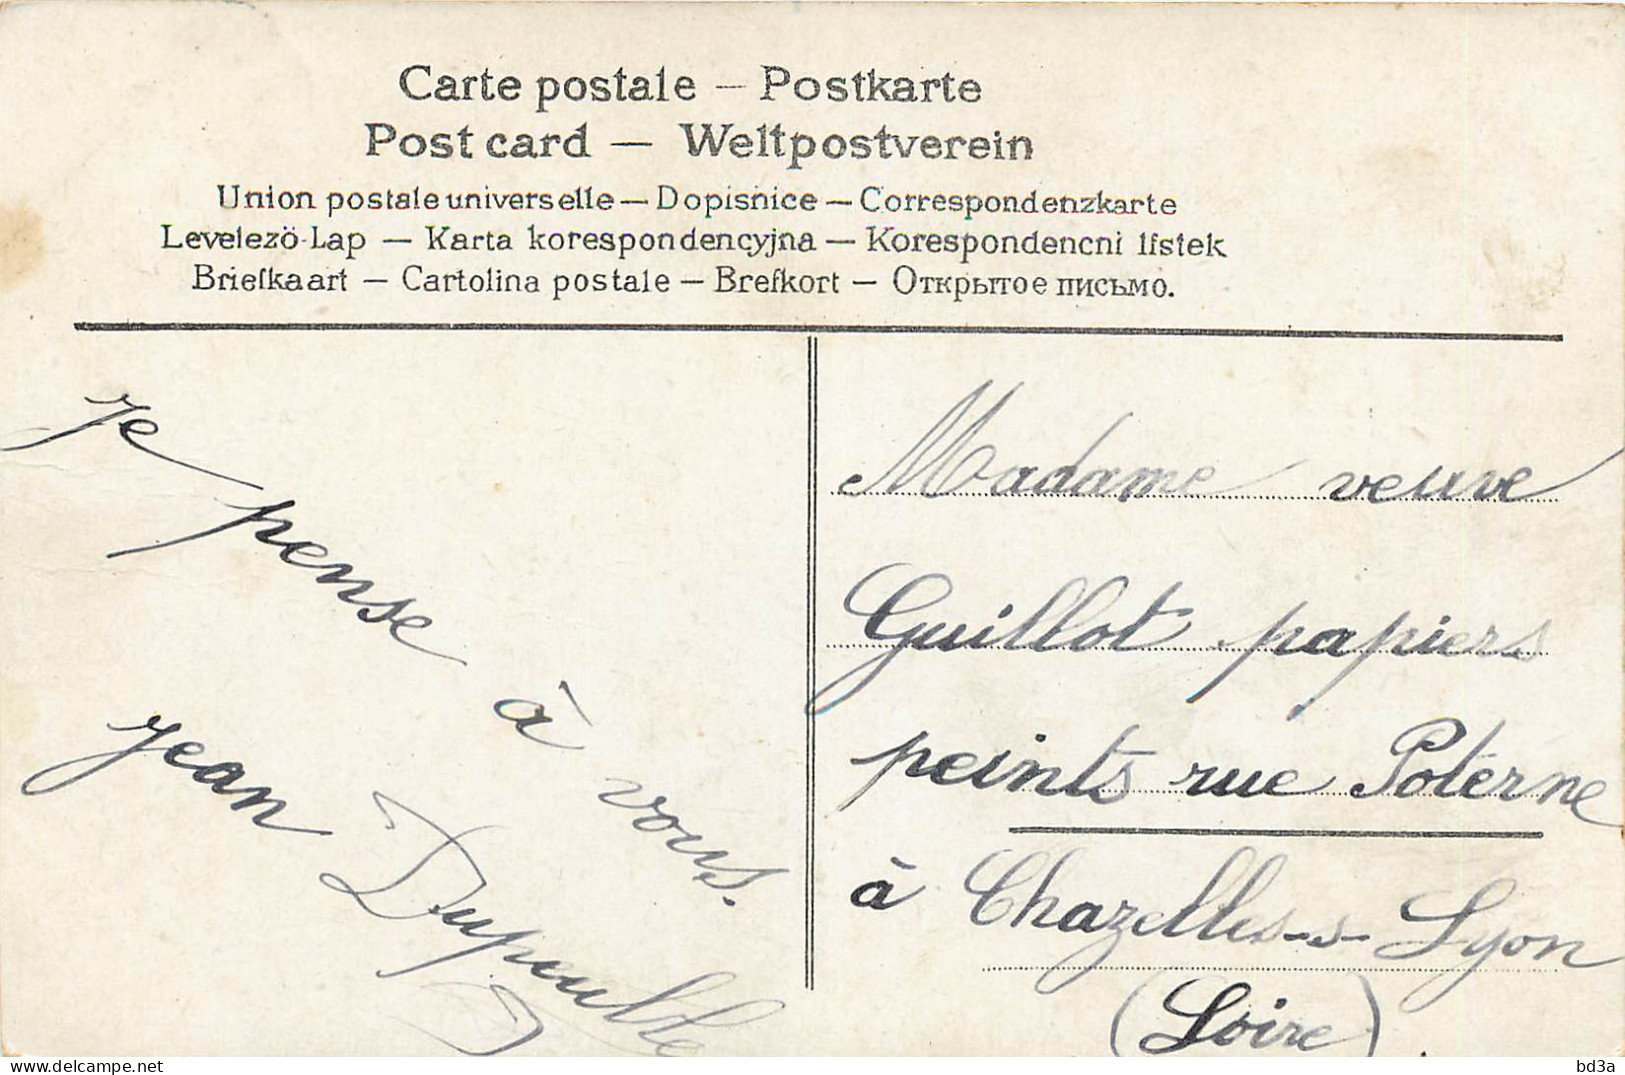 Carte postale — Postkarte
Post card — Weltpostverein
Union postale universelle — Dopisnice — Correspondenzkarte
Levelezö-Lap — Karta korespondencyjna — Korespondencni lístek
Briefkaart — Cartolina postale — Brefkort — Открытое письмо.
Je pense à vous.
Jean
Madame veuve
Guillot papiers
peints rue Poterne
à Chazelles-s-Lyon
(Loire)
bd3a